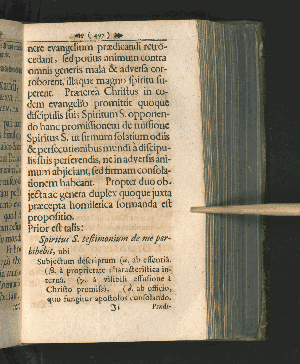 ( 497 )
nere evangelium prædicandi retro-
cedant, sed potius animum contra
omnis generis mala & adversa cor-
roborent, illaque magno spiritu su-
perent. Præterea Christus in eo-
dem evangelio promittit quoque
discipulis suis Spiritum S. opponen-
do hanc promissionem de missione
Spiritus S. ut firmum solatium odiis
& persecutionibus mundi à discipu-
lis suis perferendis, ne in adversis ani-
mum abjiciant, sed firmam consola-
tionem habeant. Propter duo ob-
jecta ac genera duplex quoque juxta
præcepta homiletica formanda est
propositio.
Prior est talis:
Spiritus S. testimonium de me per-
hibebit, ubi
Subjectum descriptum (α. ab essentiâ.
(β. à proprietate characteristica in-
terna. (γ. à visibili effusione à
Christo promissa. (δ. ab officio,
quo fungitur apostolos consolando.
Ii Prædi-